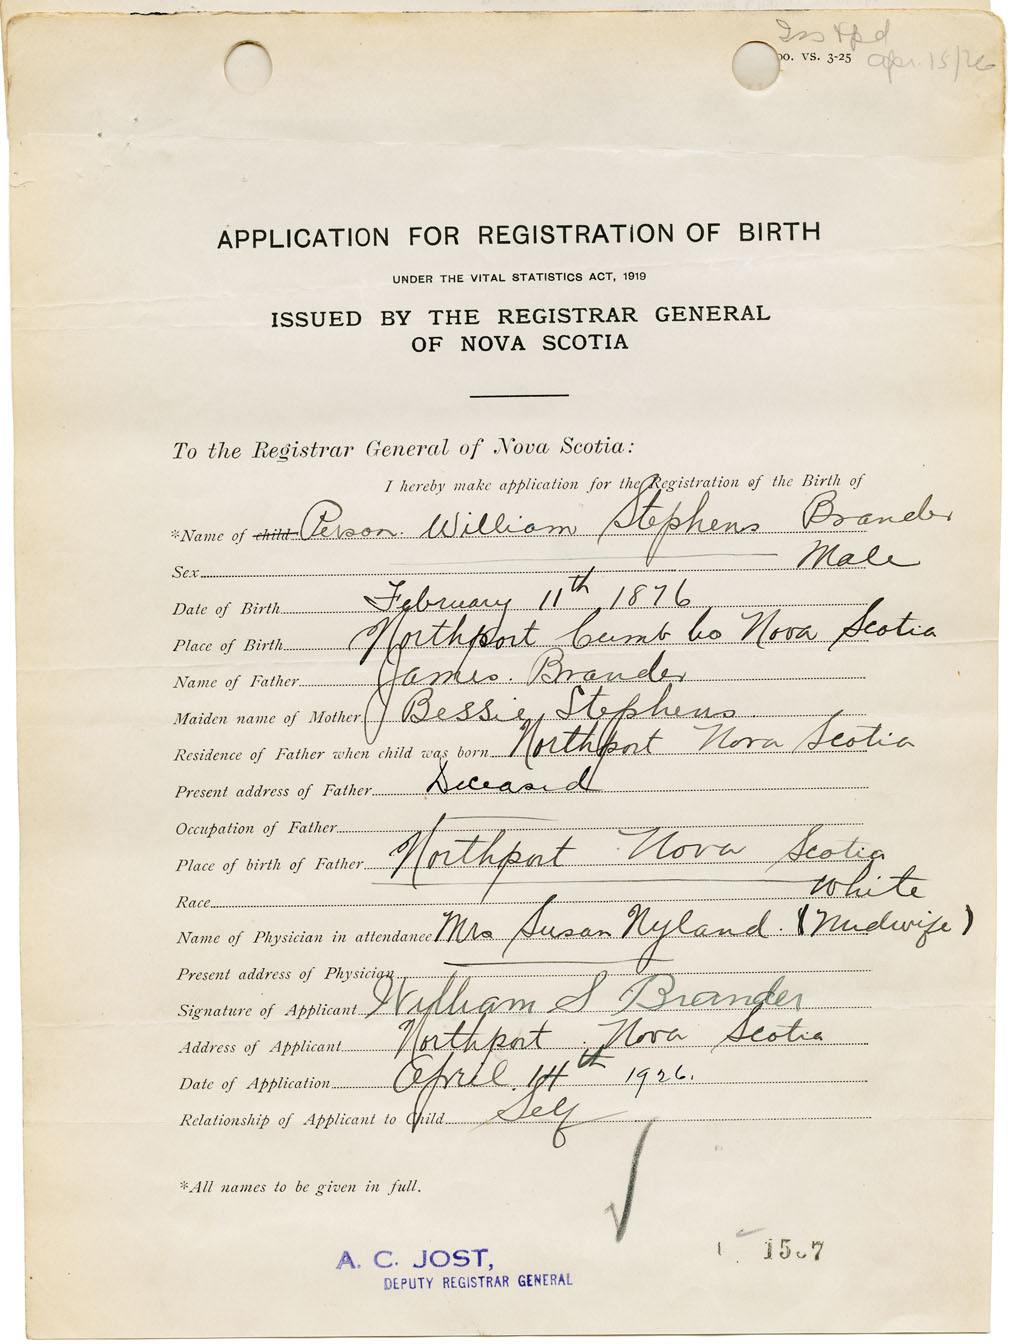 Iss & pd
00. VS. 3-25 Apr. 15/26
APPLICATION FOR REGISTRATION OF BIRTH
UNDER THE VITAL STATISTICS ACT, 1919
ISSUED BY THE REGISTRAR GENERAL
OF NOVA SCOTIA
To the Registrar General of Nova Scotia:
I hereby make application for the Registration of the Birth of
*Name of child Person. William Stephens Brander
Sex Male
Date of Birth February 11th 1876
Place of Birth Northport Cumb Co Nova Scotia
Name of Father James. Brander
Maiden name of Mother Bessie Stephens.
Residence of Father when child was born Northport Nova Scotia
Present address of Father Deceased
Occupation of Father
Place of birth of Father Northport Nova Scotia
Race White
Name of Physician in attendance Mrs Susan Nyland. (Midwife)
Present address of Physician
Signature of Applicant William S Brander
Address of Applicant Northport. Nova Scotia
Date of Application April. 14th 1926.
Relationship of Applicant to Child Self
*All names to be given in full.
A. C. JOST,
DEPUTY REGISTRAR GENERAL